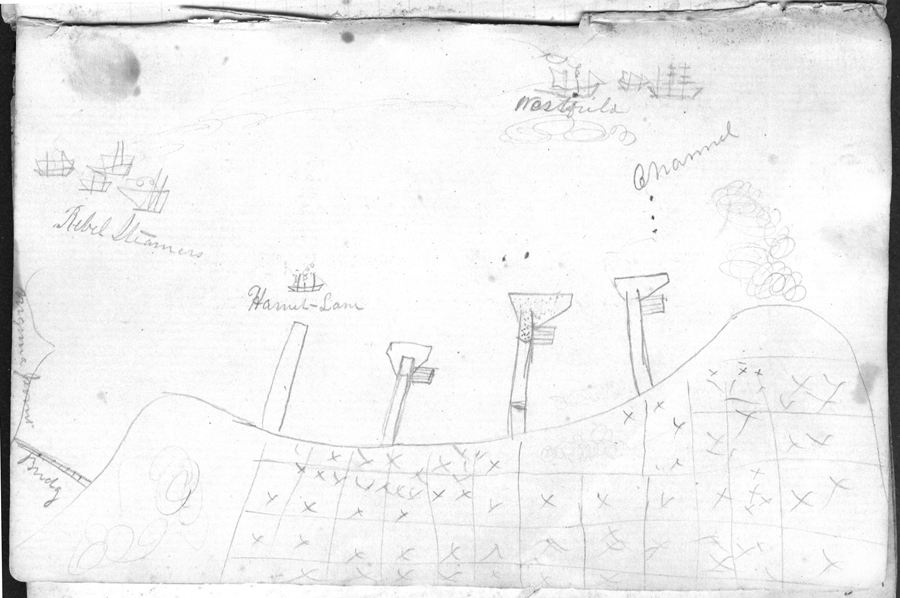 Westfield
Channel
Rebel Steamers
Harriet-Lane
Virginia Point
Bridg